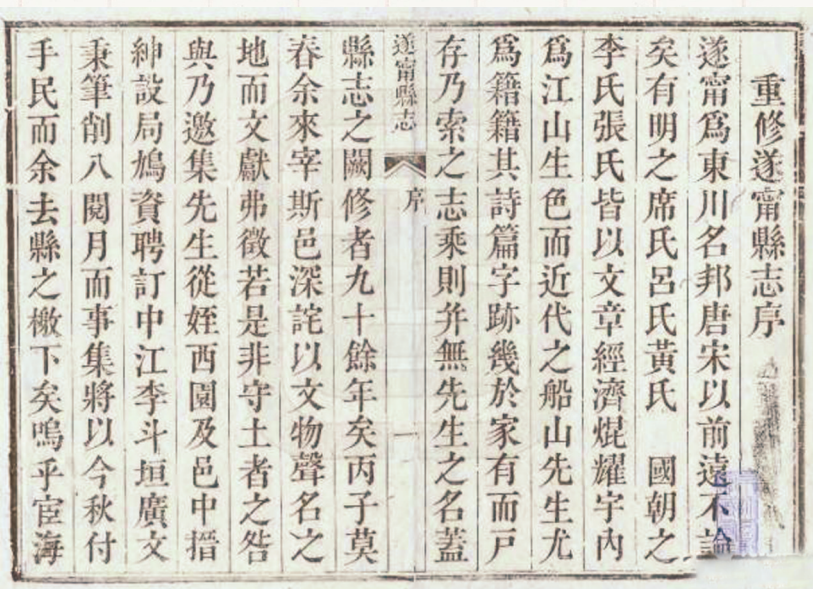 重修遂甯縣志序
遂甯爲東川名邦唐宋以前遠不論
矣有明之席氏呂氏黃氏　國朝之
李氏張氏皆以文章經濟焜耀宇內
爲江山生色而近代之船山先生尤
爲籍籍其詩篇字跡幾於家有而戸
存乃索之志乘則并無先生之名蓋
遂甯縣志
序
一
縣志之闕修者九十餘年矣丙子莫
春余來宰斯邑深詫以文物聲名之
地而文獻弗徵若是非守土者之咎
與乃邀集先生從姪西園及邑中搢
紳設局鳩資聘訂中江李斗垣廣文
秉筆削八閱月而事集將以今秋付
手民而余去縣之檄下矣嗚乎宦海